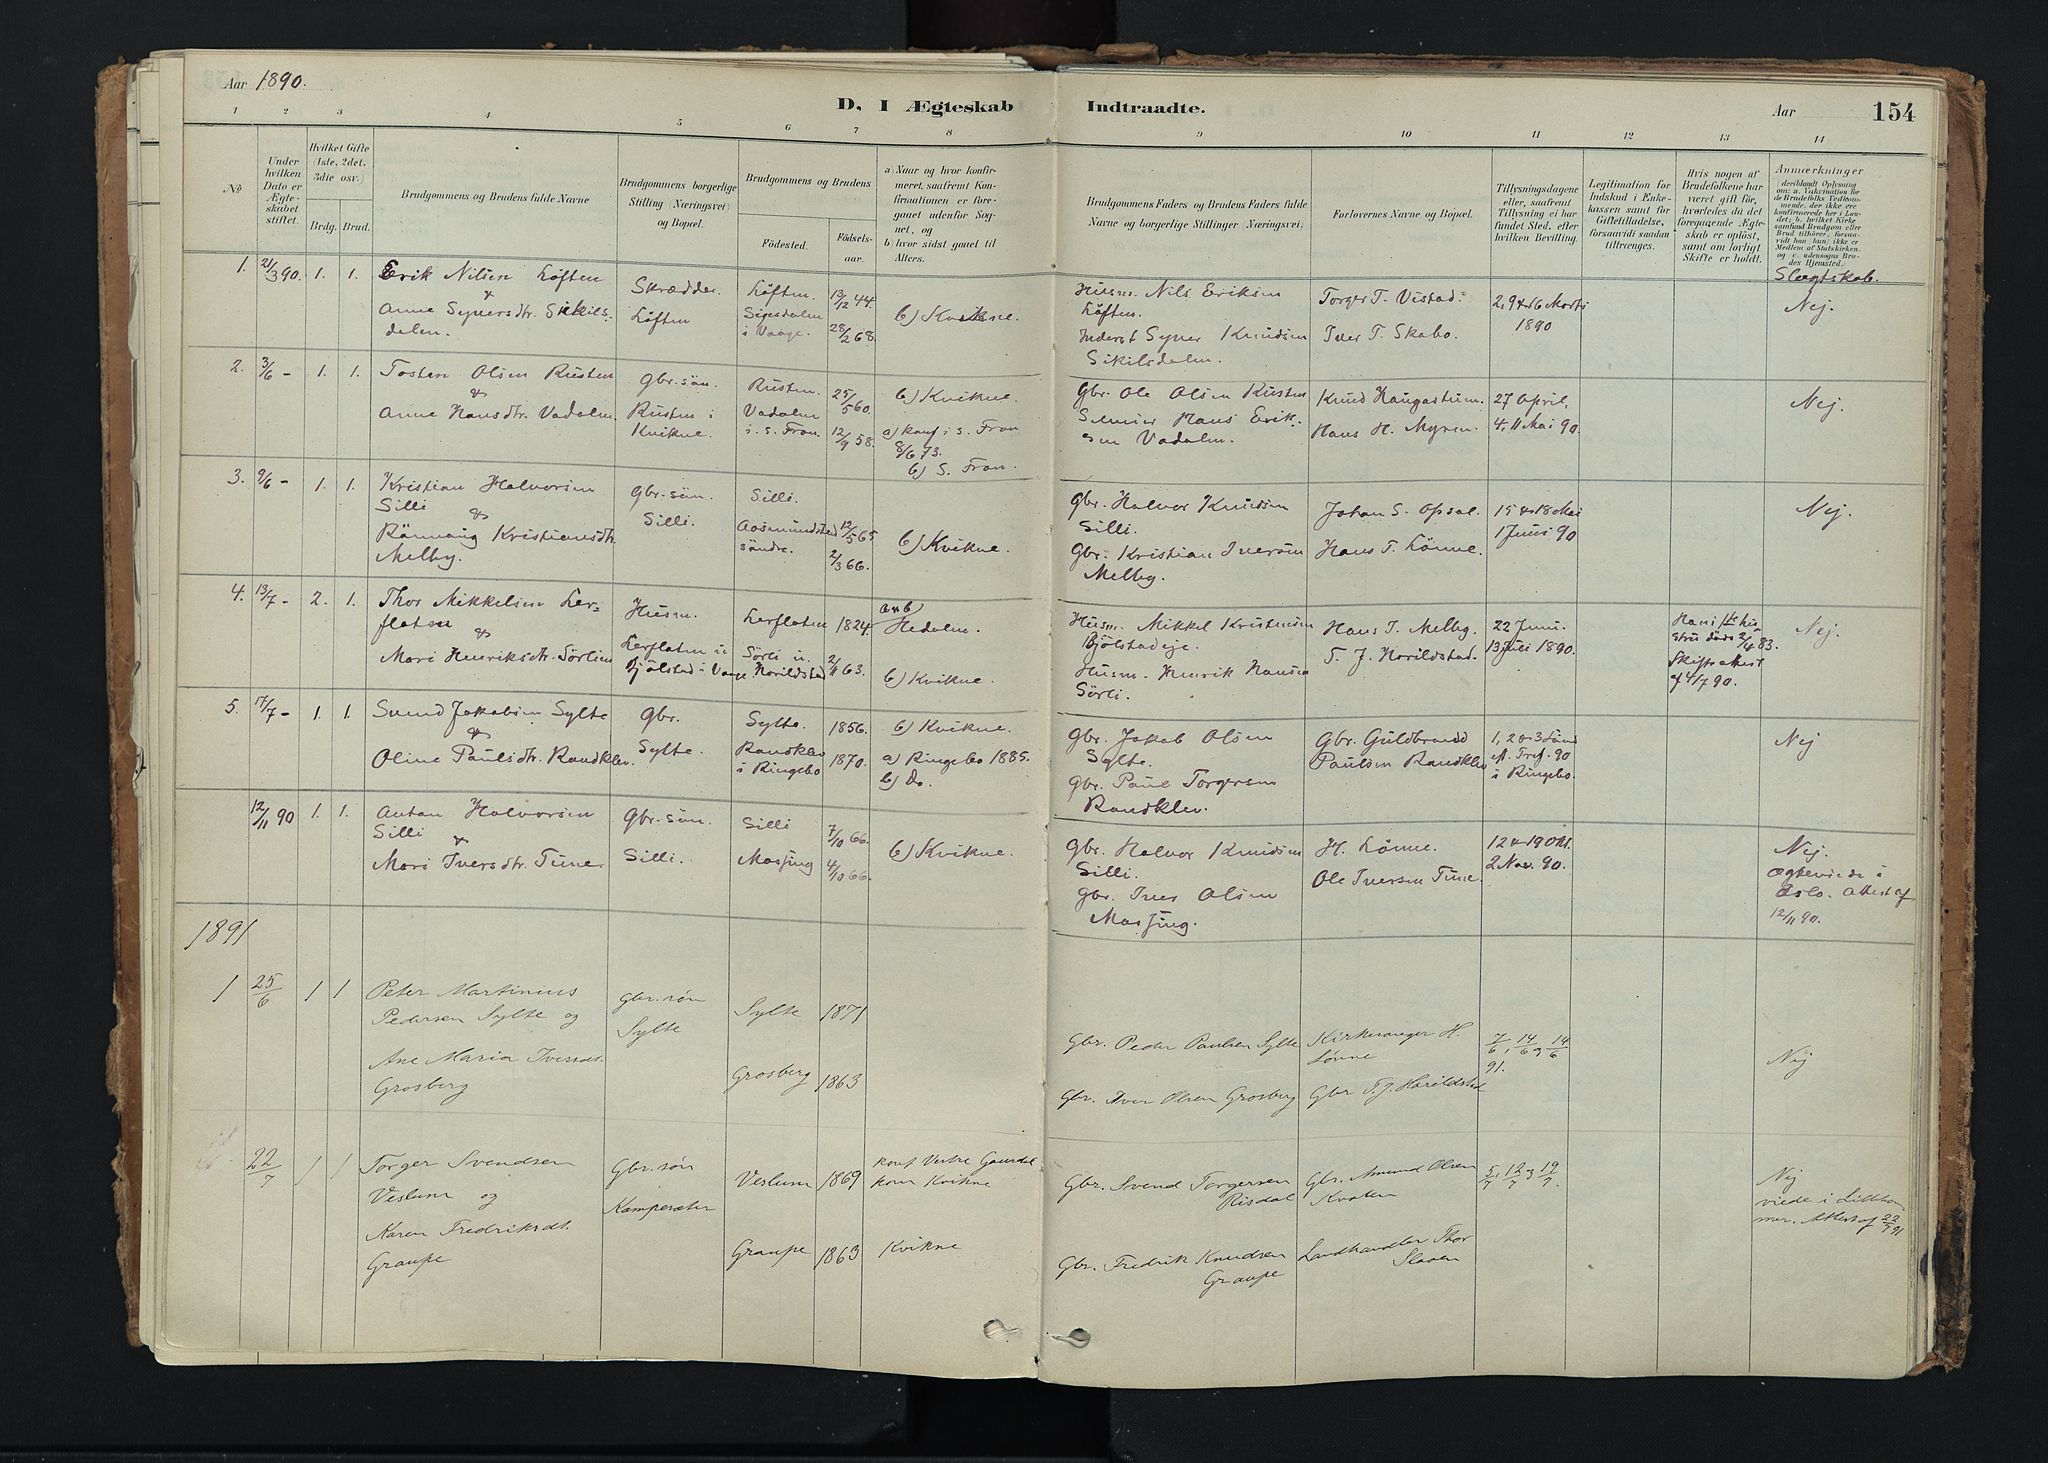 Aar 1890.
D. I Ægteskab Indtraadte.
Aar
154
1 2 3 4 5 6 7 8 9 10 11 12 13 14
No
Under hvilken Dato er Ægteskabet stiftet.
Hvilket Gifte (1ste, 2det, 3die osv.)
Brdg. Brud.
Brudgommens og Brudens fulde Navne
Brudgommens borgerlige Stilling (Næringsvei) og Bopæl.
Brudgommens og Brudens
Födested. Födselsaar.
a) Naar og hvor konfirmeret, saafremt Konfirmationen er foregaaet udenfor Sognet, og
b) hvor sidst gaaet til Alters.
Brudgommens Faders og Brudens Faders fulde Navne og borgerlige Stillinger (Næringsvei).
Forlovernes Navne og Bopæl.
Tillysningsdagene eller, saafremt Tillysning ei har fundet Sted, efter hvilken Bevilling.
Legitimation for Indskud i Enkekassen samt for Giftetilladelse, forsaavidt saadan tiltrænges.
Hvis nogen af Brudefolkene har været gift før, hvorledes da det foregaaende Ægteskab er oplöst, samt om lovligt Skifte er holdt.
Anmærkninger
Slægtskab.
1. 21/3 90. 1. 1.
Erik Nilsen Löften
&
Anne Synersdtr. Sikilsdalen.
Skrædder.
Löften
Löften. 13/12 44.
i Vaage. 28/2 68.
b) Kvikne.
Husm. Nils Eriksen
Löften.
Inderst Syver Knudsen
Sikilsdalen.
Torger T. Vistad.
Iver T. Skabo.
2, 9 & 16 Marts
1890
Nej.
2. 3/6 - 1. 1.
Tosten Olsen Rusten
&
Anne Hansdtr. Vadalen.
Gbr.sön.
Rusten i
Kvikne.
Rusten. 25/5 60.
Vadalen
i S. Fron. 12/9 58.
b) Kvikne.
a) konf. i S. Fron
8/6 73.
b) S. Fron.
Gbr. Ole Olsen Rusten
Hans Eriksen Vadalen.
Knud Haugastuen.
Hans H. Myren.
27 April,
4, 11 Mai 90.
Nej.
3. 9/6 - 1. 1.
Kristian Halvorsen
Silli
&
Rönnaug Kristiansdtr.
Melby.
Gbr.sön.
Silli.
Silli.
Aasmundstad 12/5 65
söndre. 2/3 66.
b) Kvikne.
Gbr. Halvor Knudsen
Silli.
Gbr. Kristian Iversen
Melby.
Johan S. Opsal.
Hans T. Lönne.
15 & 18 Mai
1 Juni 90
Nej.
4. 13/7 - 2. 1.
Thor Mikkelsen Lerflaten
&
Mari Henriksdtr. Sörlien
Husm.
Lerflaten u
Bjölstad i Vaage
Lerflaten 1824.
Sörli u.
Horildstad 2/11 63.
a & b)
Hedalen.
b) Kvikne.
Husm. Mikkel Kristensen
Bjölstadeje.
Husm. Henrik Hansen
Sörli.
Hans I. Melby.
T. J. Horildstad.
22 Juni.
13 Juli 1890.
Hans 1ste hustru döde 2/4 83.
Skifteattest
af 4/7 90.
Nej.
5. 17/7 - 1. 1.
Svend Jakobsen Sylte
&
Oline Paulsdtr. Randklev.
Gbr.
Sylte.
Sylte. 1856.
Randklev
i Ringebo 1870.
b) Kvikne.
a) Ringebo 1885.
b) Do.
Gbr. Jakob Olsen
Sylte.
Gbr. Paul Torgersen
Randklev.
Gbr. Guldbrand
Paulsen Randklev
1, 2 & 3 Sönd
e. Tref. 90
i Ringebo.
Nej
12/11 90 1. 1.
Anton Halvorsen
Silli
&
Mari Iversdtr. Tune
Gbr.sön.
Silli.
Silli 7/10 66.
Masjing 4/10 66.
b) Kvikne.
Gbr. Halvor Knudsen
Silli.
Gbr. Iver Olsen
Masjing.
H. Lönne.
Ole Iversen Tune.
12 & 19 Okt.
2 Nov. 90.
Nej.
Ægteviede i
Oslo. Attest af
12/11 90.
1891
1 25/6 1 1
Peter Martinius
Pedersen Sylte og
Ane Maria Iversdt.
Grosberg
Gbr.søn
Sylte
Sylte 1871
Grosberg 1863
Gbr. Peder Paulsen Sylte
Gbr. Iver Olsen Grosberg
Kirkesanger H.
Lønne
Gbr T. J. Horildstad
7/6, 14/6, 14/6
91.
Nej
22/7 1 1
Torger Svendsen
Veslum og
Karen Fredriksdt.
Graupe
Gbr.søn
Kampesæter
Veslum 1869
Graupe 1863
konf Vestre Gausdal
kom Kvikne
Kvikne
Gbr. Svend Torgersen
Risdal
Gbr. Fredrik Knudsen
Graupe
Gbr. Amund Olsen
Kvaten
Landhandler Thor
Slaaen
5/7, 12/7, 19/7.
Nej
viede i Lillehammer. Attest af 22/7 91